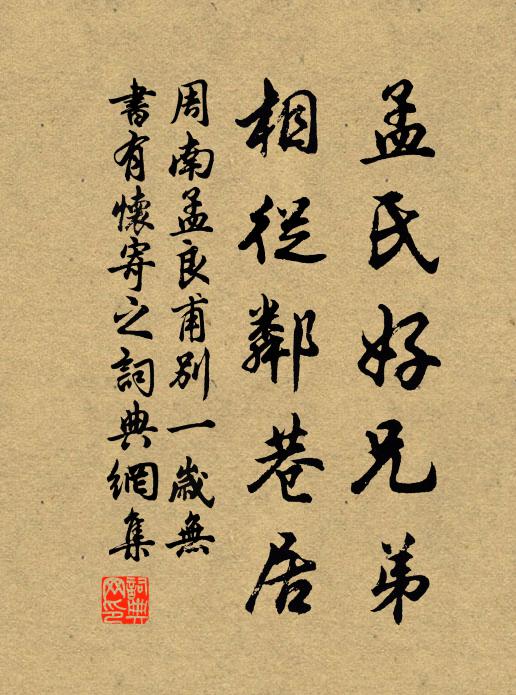 孟氏好兄弟
相從鄰巷居
周南孟良甫別一歲無
書有懷寄之詞典網集
詞典
网印